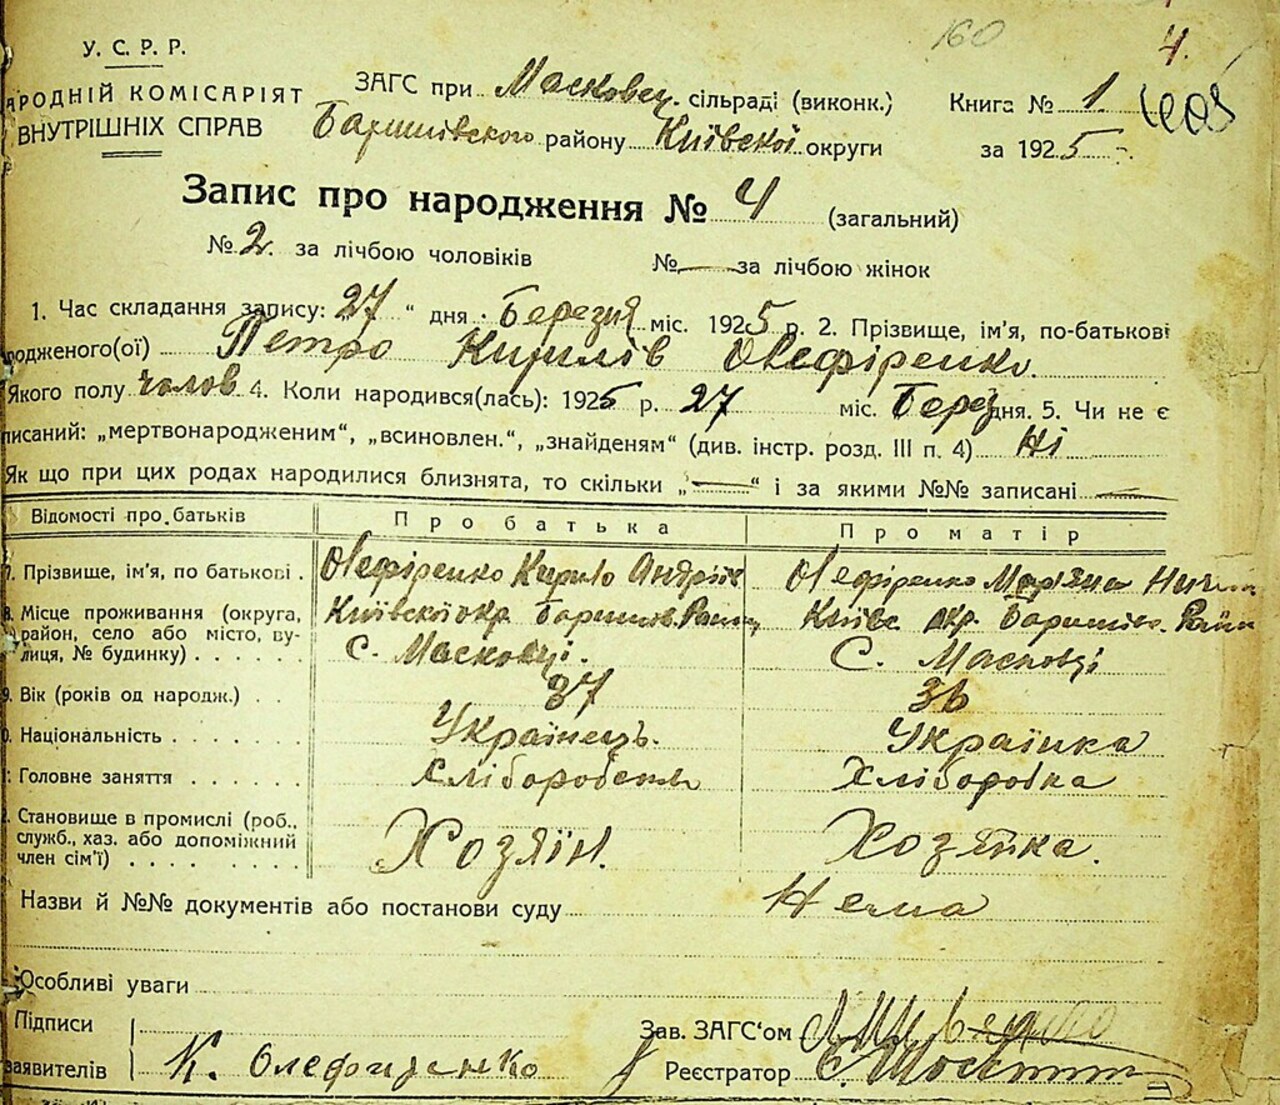 160
4.
У. С. Р. Р.
АРОДНІЙ КОМІСАРІЯТ
ВНУТРІШНІХ СПРАВ
ЗАГС при Масковец. сільраді (виконк.) Книга № 1.
Баришівского району Київскої округи за 1925
Запис про народження № 4 (загальний)
№ 2. за лічбою чоловіків № — за лічбою жінок
1. Час складання запису: „27“ дня Березня міс. 1925 р. 2. Прізвище, ім'я, по-батькові
родженого(ої) Петро Кирилів Олефіренко.
Якого полу чолов 4. Коли народився(лась): 1925 р. 27 міс. Берез дня. 5. Чи не є
писаний: „мертвонародженим“, „всиновлен.“, „знайденям“ (див. інстр. розд. III п. 4) Ні
Як що при цих родах народилися близнята, то скільки „—“ і за якими №№ записані —
Відомості про батьків Про батька Про матір
7. Прізвище, ім'я, по батькові . Олефіренко Кирило Андрій Олефіренко Мар'яна
8. Місце проживання (округа, Київскої окр. Баришов. Київс окр. Баришів.
район, село або місто, ву-
лиця, № будинку) . . . . . . с. Масковці. С. Масковці
9. Вік (років од народж.) . . 37 36
0. Національність . . . . . . . Українець. Українка
Головне заняття . . . . . . Хліборобець Хліборобка
2. Становище в промислі (роб.,
служб., хаз. або допоміжний
член сім'ї) . . . . Хозяїн. Хозяйка.
Назви й №№ документів або постанови суду Нема
Особливі уваги
Підписи
заявителів К. Олефиренко
Зав. ЗАГС'ом
Реєстратор